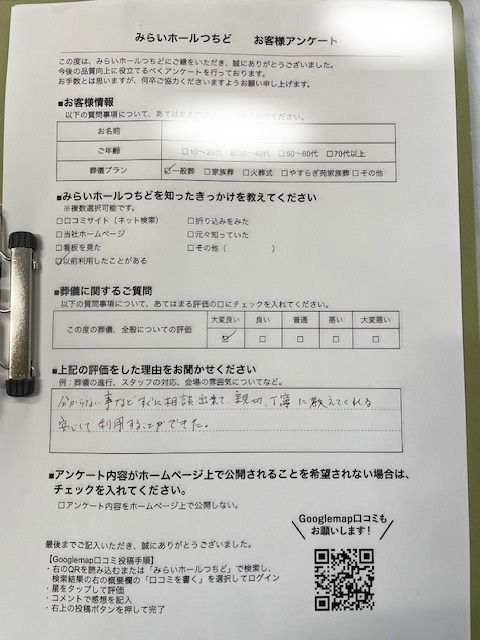 みらいホールつちど　お客様アンケート
この度は、みらいホールつちどにご縁をいただき、誠にありがとうございました。
今後の品質向上に役立てるべくアンケートを行っております。
お手数とは思いますが、何卒ご協力くださいますようお願い申し上げます。
■お客様情報
以下の質問事項について、あてはまる□にチェックを入れてください。
お名前
ご年齢 □10～20代 ☑30～40代 □50～60代 □70代以上
葬儀プラン ☑一般葬 □家族葬 □火葬式 □やすらぎ苑家族葬 □その他
■みらいホールつちどを知ったきっかけを教えてください
※複数選択可能です。
□口コミサイト（ネット検索） □折り込みをみた
□当社ホームページ □元々知っていた
□看板を見た □その他（　　　）
☑以前利用したことがある
■葬儀に関するご質問
以下の質問事項について、あてはまる評価の□にチェックを入れてください。
大変良い 良い 普通 悪い 大変悪い
この度の葬儀、全般についての評価 ☑ □ □ □ □
■上記の評価をした理由をお聞かせください
例：葬儀の進行、スタッフの対応、会場の雰囲気についてなど。
分からない事などすぐに相談出来て、親切、丁寧に教えてくれる
安心して利用することができた。
■アンケート内容がホームページ上で公開されることを希望されない場合は、
チェックを入れてください。
□アンケート内容をホームページ上で公開しない。
Googlemap口コミも
お願いします！
最後までご記入いただき、誠にありがとうございました。
【Googlemap口コミ投稿手順】
・右のQRを読み込むまたは「みらいホールつちど」で検索し、
検索結果の右の概要欄の「口コミを書く」を選択してログイン
・星をタップして評価
・コメントで感想を記入
・右上の投稿ボタンを押して完了